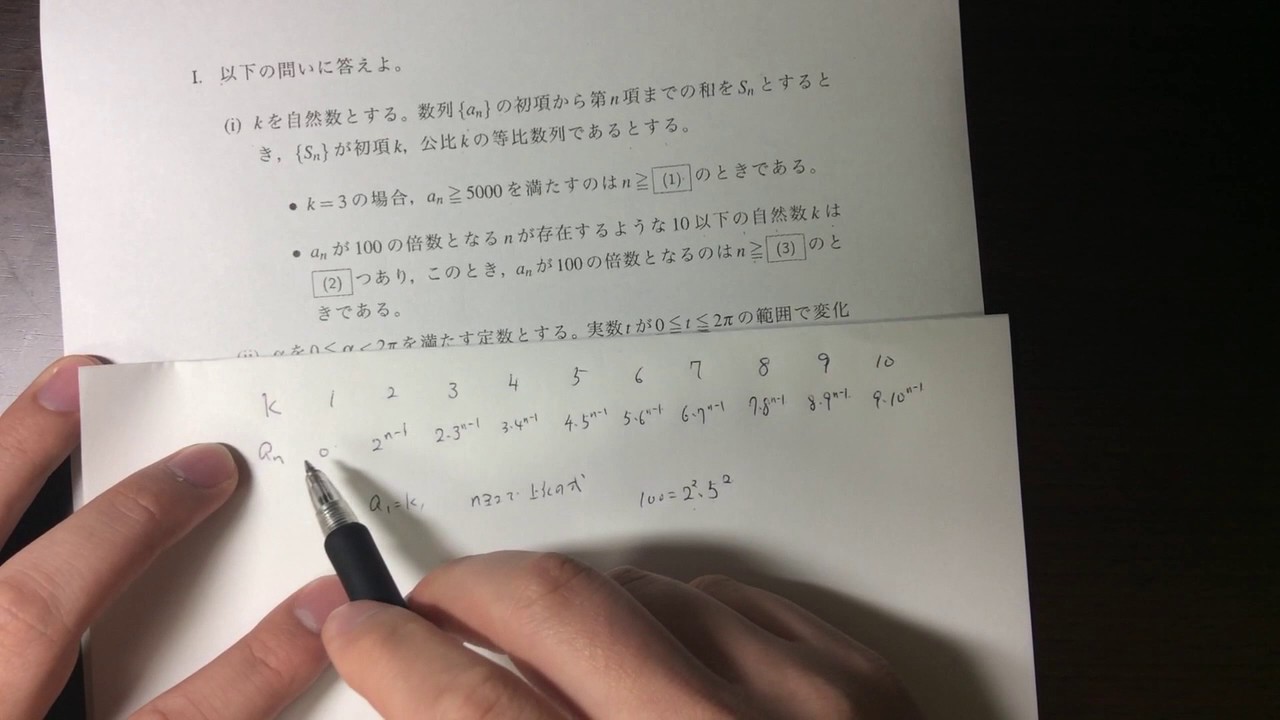 I. 以下の問いに答えよ。
(i) kを自然数とする。数列{aₙ}の初項から第n項までの和をSₙとすると
き，{Sₙ}が初項k，公比kの等比数列であるとする。
• k＝3の場合，aₙ≧5000を満たすのはn≧(1)のときである。
• aₙが100の倍数となるnが存在するような10以下の自然数kは
(2)つあり，このとき，aₙが100の倍数となるのはn≧(3)のと
きである。
(ii) αを0≦α<2πを満たす定数とする。実数tが0≦t≦2πの範囲で変化
k 1 2 3 4 5 6 7 8 9 10
aₙ 0 2ⁿ⁻¹ 2·3ⁿ⁻¹ 3·4ⁿ⁻¹ 4·5ⁿ⁻¹ 5·6ⁿ⁻¹ 6·7ⁿ⁻¹ 7·8ⁿ⁻¹ 8·9ⁿ⁻¹ 9·10ⁿ⁻¹
a₁=k, n≧2で上記の式 100=2²·5²